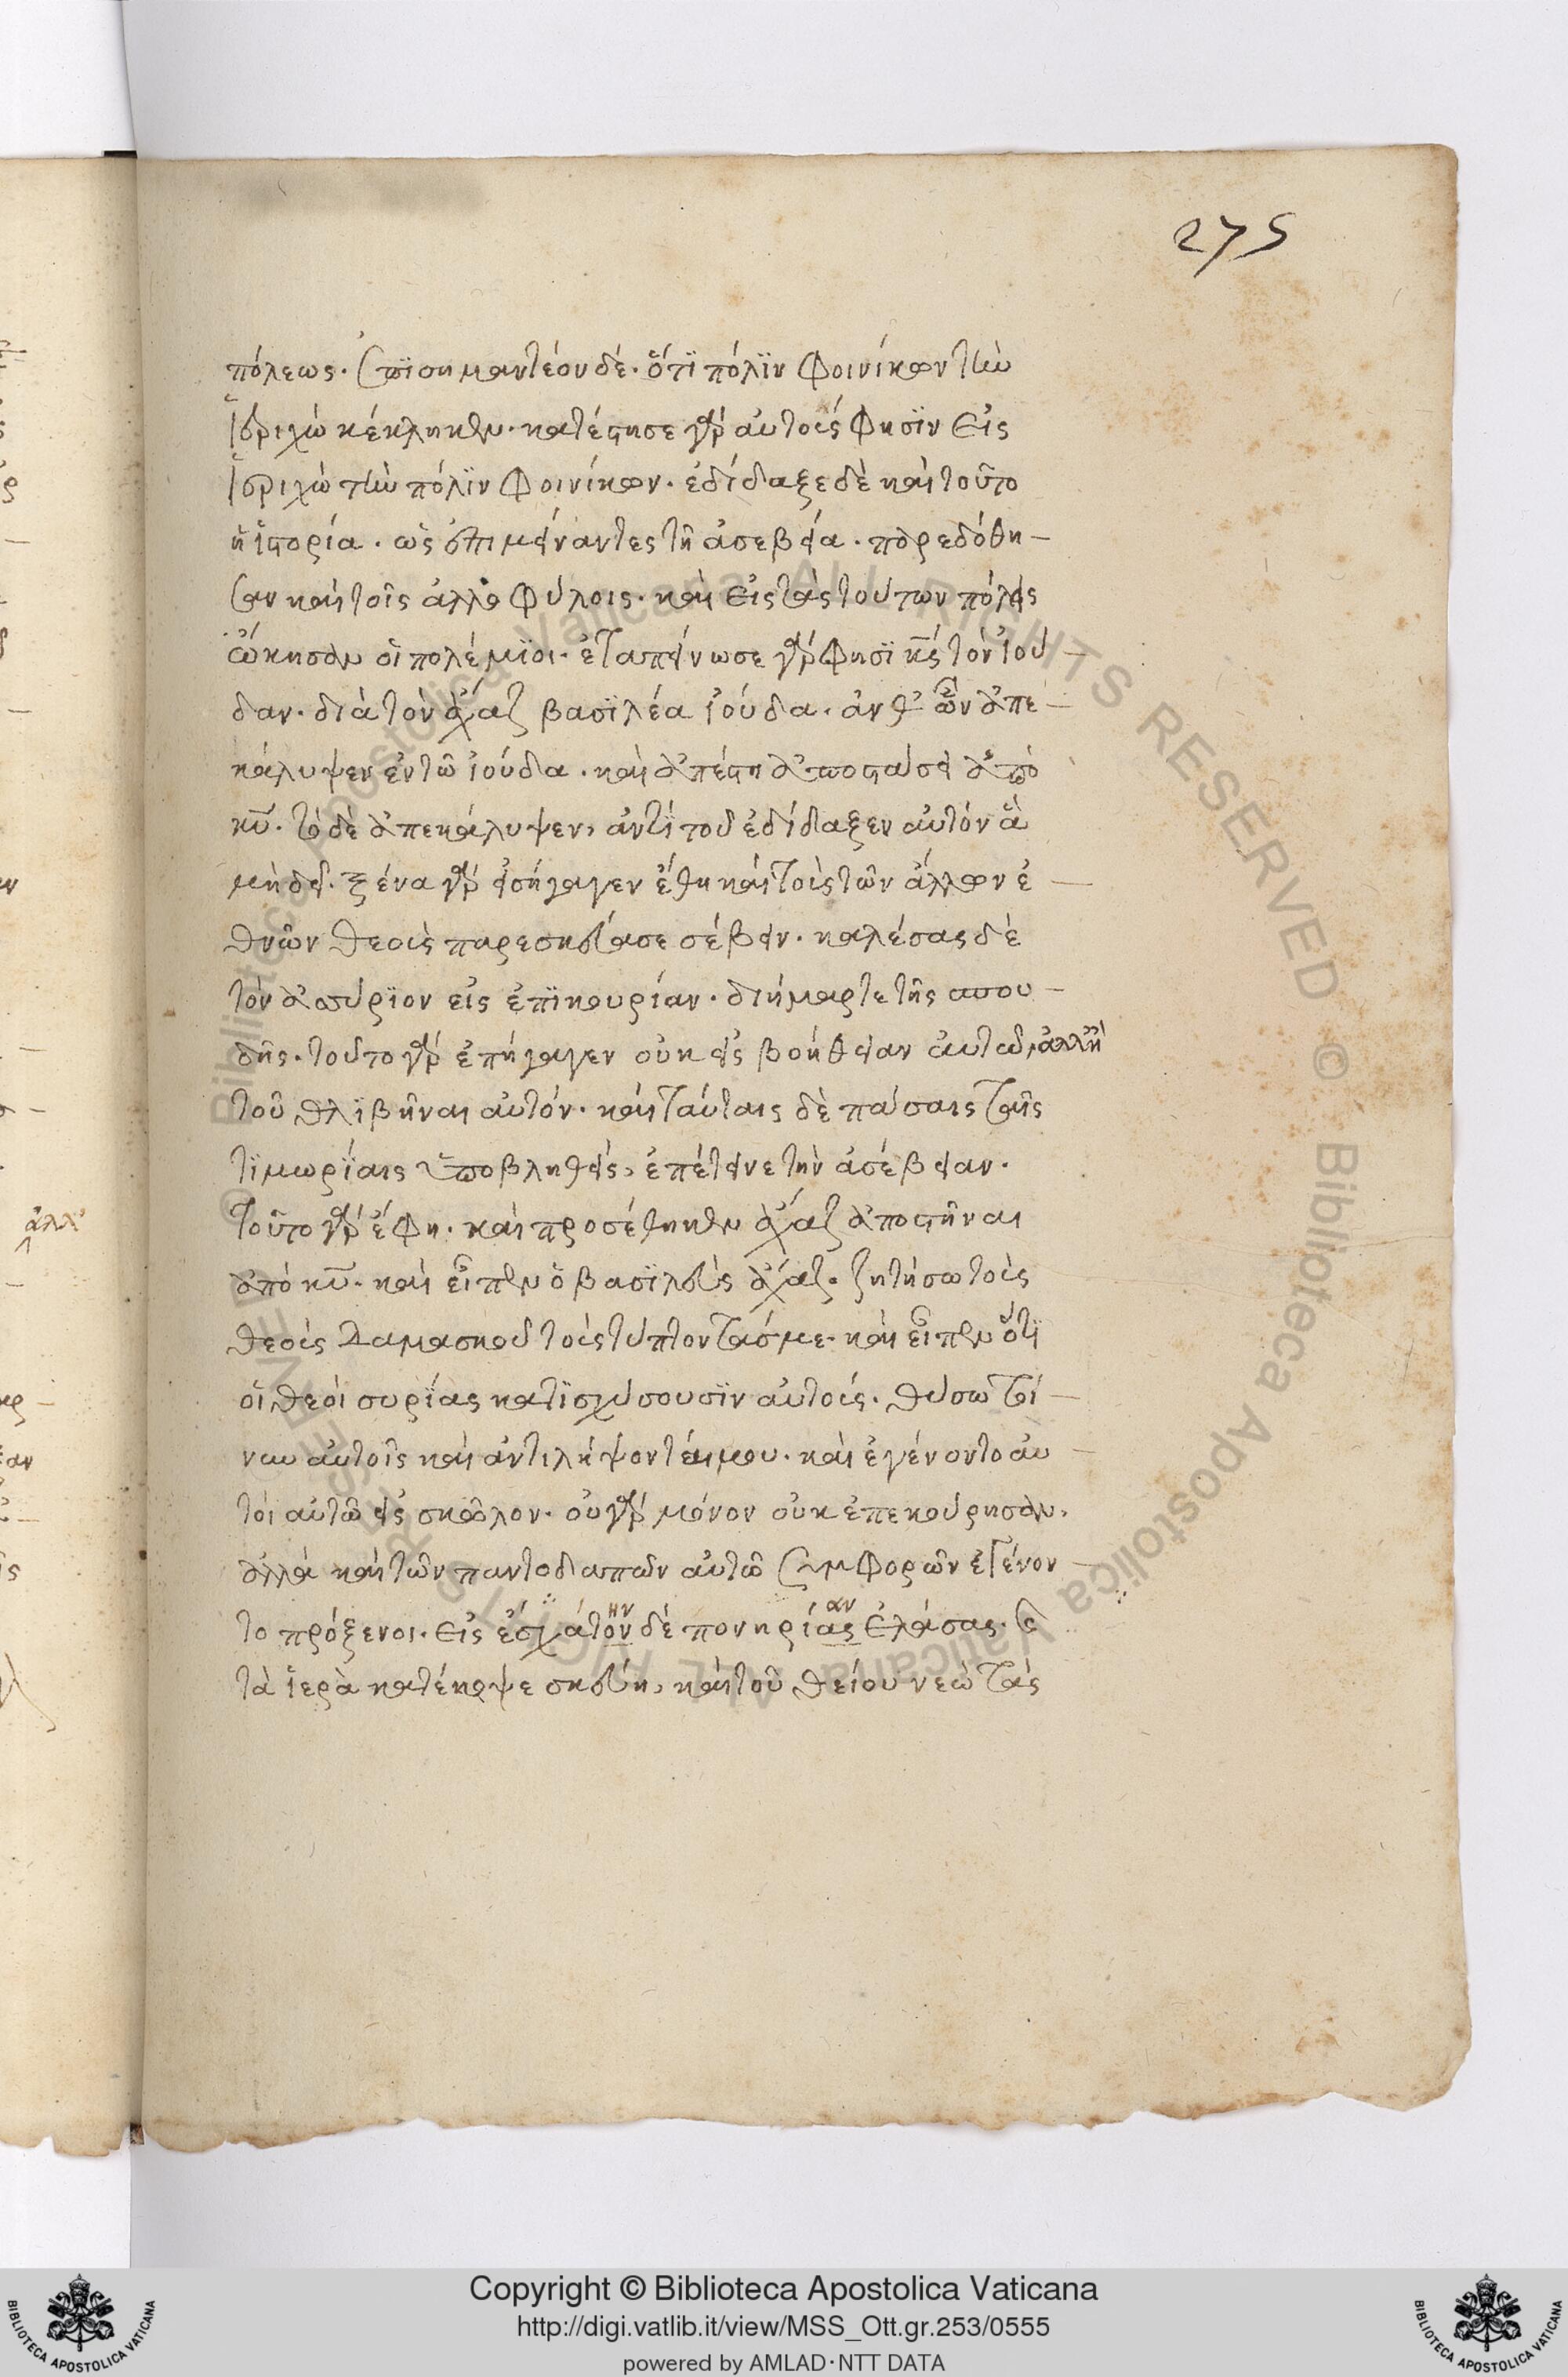 275
πόλεως. ἐπϊσημαντέον δέ. ὅτϊ πόλϊν φοινίκων τὴν
ἱεριχὼ κέκληκεν. κατέστησε γὰρ αὐτοὺς φησϊν εἰς
ἱεριχὼ τὴν πόλϊν φοινίκων. ἐδίδαξε δὲ καὶ τοῦτο
ἡ ἱστορία. ὡς ἐπιμείναντες τῆ ἀσεβεία. παρεδόθη-
σαν καὶ τοῖς ἀλλοφύλοις. καὶ εἰς τὰς τούτων πόλεις
ὤκησαν οἱ πολέμϊοι. ἐταπείνωσε γὰρ φησϊ κς τὸν ἰού-
δαν. διὰ τὸν ἄχαζ βασϊλέα ἰούδα. ἀνθ' ὧν ἀπε-
κάλυψεν ἐν τῶ ἰούδα. καὶ ἀπέστη ἀποστάσει ἀπὸ
κυ. τὸ δὲ ἀπεκάλυψεν, ἀντῒ τοῦ ἐδίδαξεν αὐτὸν ἃ
μὴ δεῖ. ξένα γὰρ εἰσήγαγεν ἔθη καὶ τοὺς τῶν ἄλλων ἐ-
θνῶν θεοὺς παρεσκεύασε σέβειν. καλέσας δὲ
τὸν ἀσσύρϊον εἰς ἐπϊκουρίαν. διήμαρτε τῆς σπου-
δῆς. τοῦτο γὰρ ἐπήγαγεν οὐκ εἰς βοήθειαν αὐτοῦ, ἀλλ' ἢ
τοῦ θλϊβῆναι αὐτόν. καὶ ταύταις δὲ πάσαις ταῖς
τϊμωρίαις ὑποβληθείς, ἐπέτεινε τὴν ἀσέβειαν.
τοῦτο γὰρ ἔφη. καὶ προσέθηκεν ἄχαζ ἀποστῆναι
ἀπὸ κυ. καὶ εἶπεν ὁ βασϊλεὺς ἄχαζ. ζητήσω τοὺς
θεοὺς δαμασκοῦ τοὺς τύπτοντάς με. καὶ εἶπεν ὅτϊ
οἱ θεοὶ συρίας κατϊσχύσουσϊν αὐτούς. θύσω τοί-
νυν αὐτοῖς καὶ ἀντιλήψονταί μου. καὶ ἐγένοντο αὐ-
τοὶ αὐτῶ εἰς σκῶλον. οὐ γὰρ μόνον οὐκ ἐπεκούρησαν,
ἀλλὰ καὶ τῶν παντοδαπῶν αὐτῶ συμφορῶν ἐγένον-
το πρόξενοι. εἰς ἐσχάτον ην δὲ πονηρίας αν ἐλάσας.
τὰ ἱερὰ κατέκοψε σκεύη, καὶ τοῦ θείου νεὼ τὰς
ἀλλ'
Copyright © Biblioteca Apostolica Vaticana
http://digi.vatlib.it/view/MSS_Ott.gr.253/0555
powered by AMLAD·NTT DATA
BIBLIOTECA APOSTOLICA VATICANA
BIBLIOTECA APOSTOLICA VATICANA